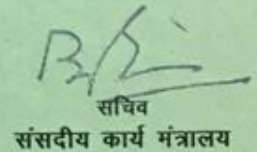 सचिव
संसदीय कार्य मंत्रालय